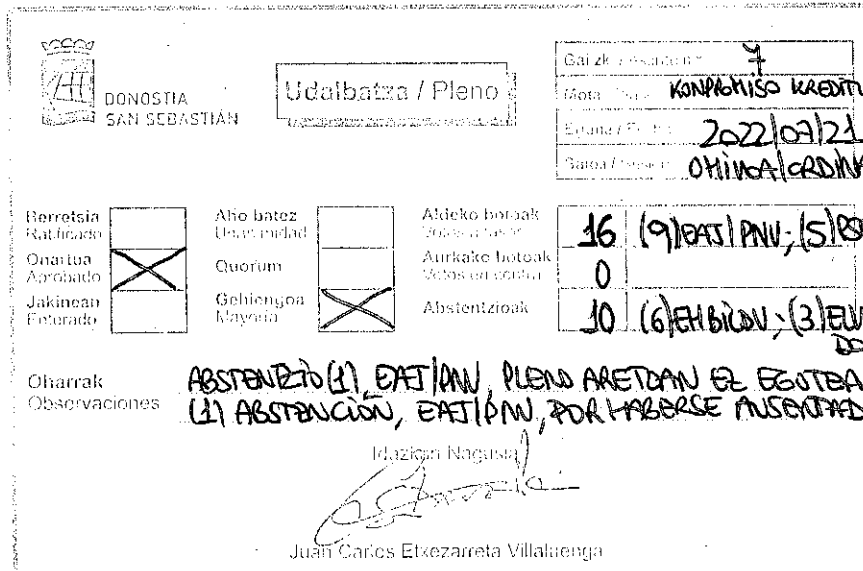 DONOSTIA
SAN SEBASTIÁN
Udalbatza / Pleno
Gai zk. 7
Mota KONPROMISO KREDITU
Eguna / Fecha 2022/07/21
Saioa / OHIKOA/ORDINA
Berretsia
Ratificado
Onartua
Aprobado
Jakinean
Enterado
Aho batez
Unanimidad
Quorum
Gehiengoa
Mayoría
Aldeko botoak
Votos a favor
16 (9) EAJ/PNV; (5) PS
Aurkako botoak
Votos en contra
0
Abstentzioak
10 (6) EH BILDU; (3) EL
Oharrak
Observaciones
ABSTENTZIO (1), EAJ/PNV, PLENO ARETOAN EZ EGOTEA
(1) ABSTENCIÓN, EAJ/PNV, POR HABERSE AUSENTAD
Idazkari Nagusia
Juan Carlos Etxezarreta Villaluenga